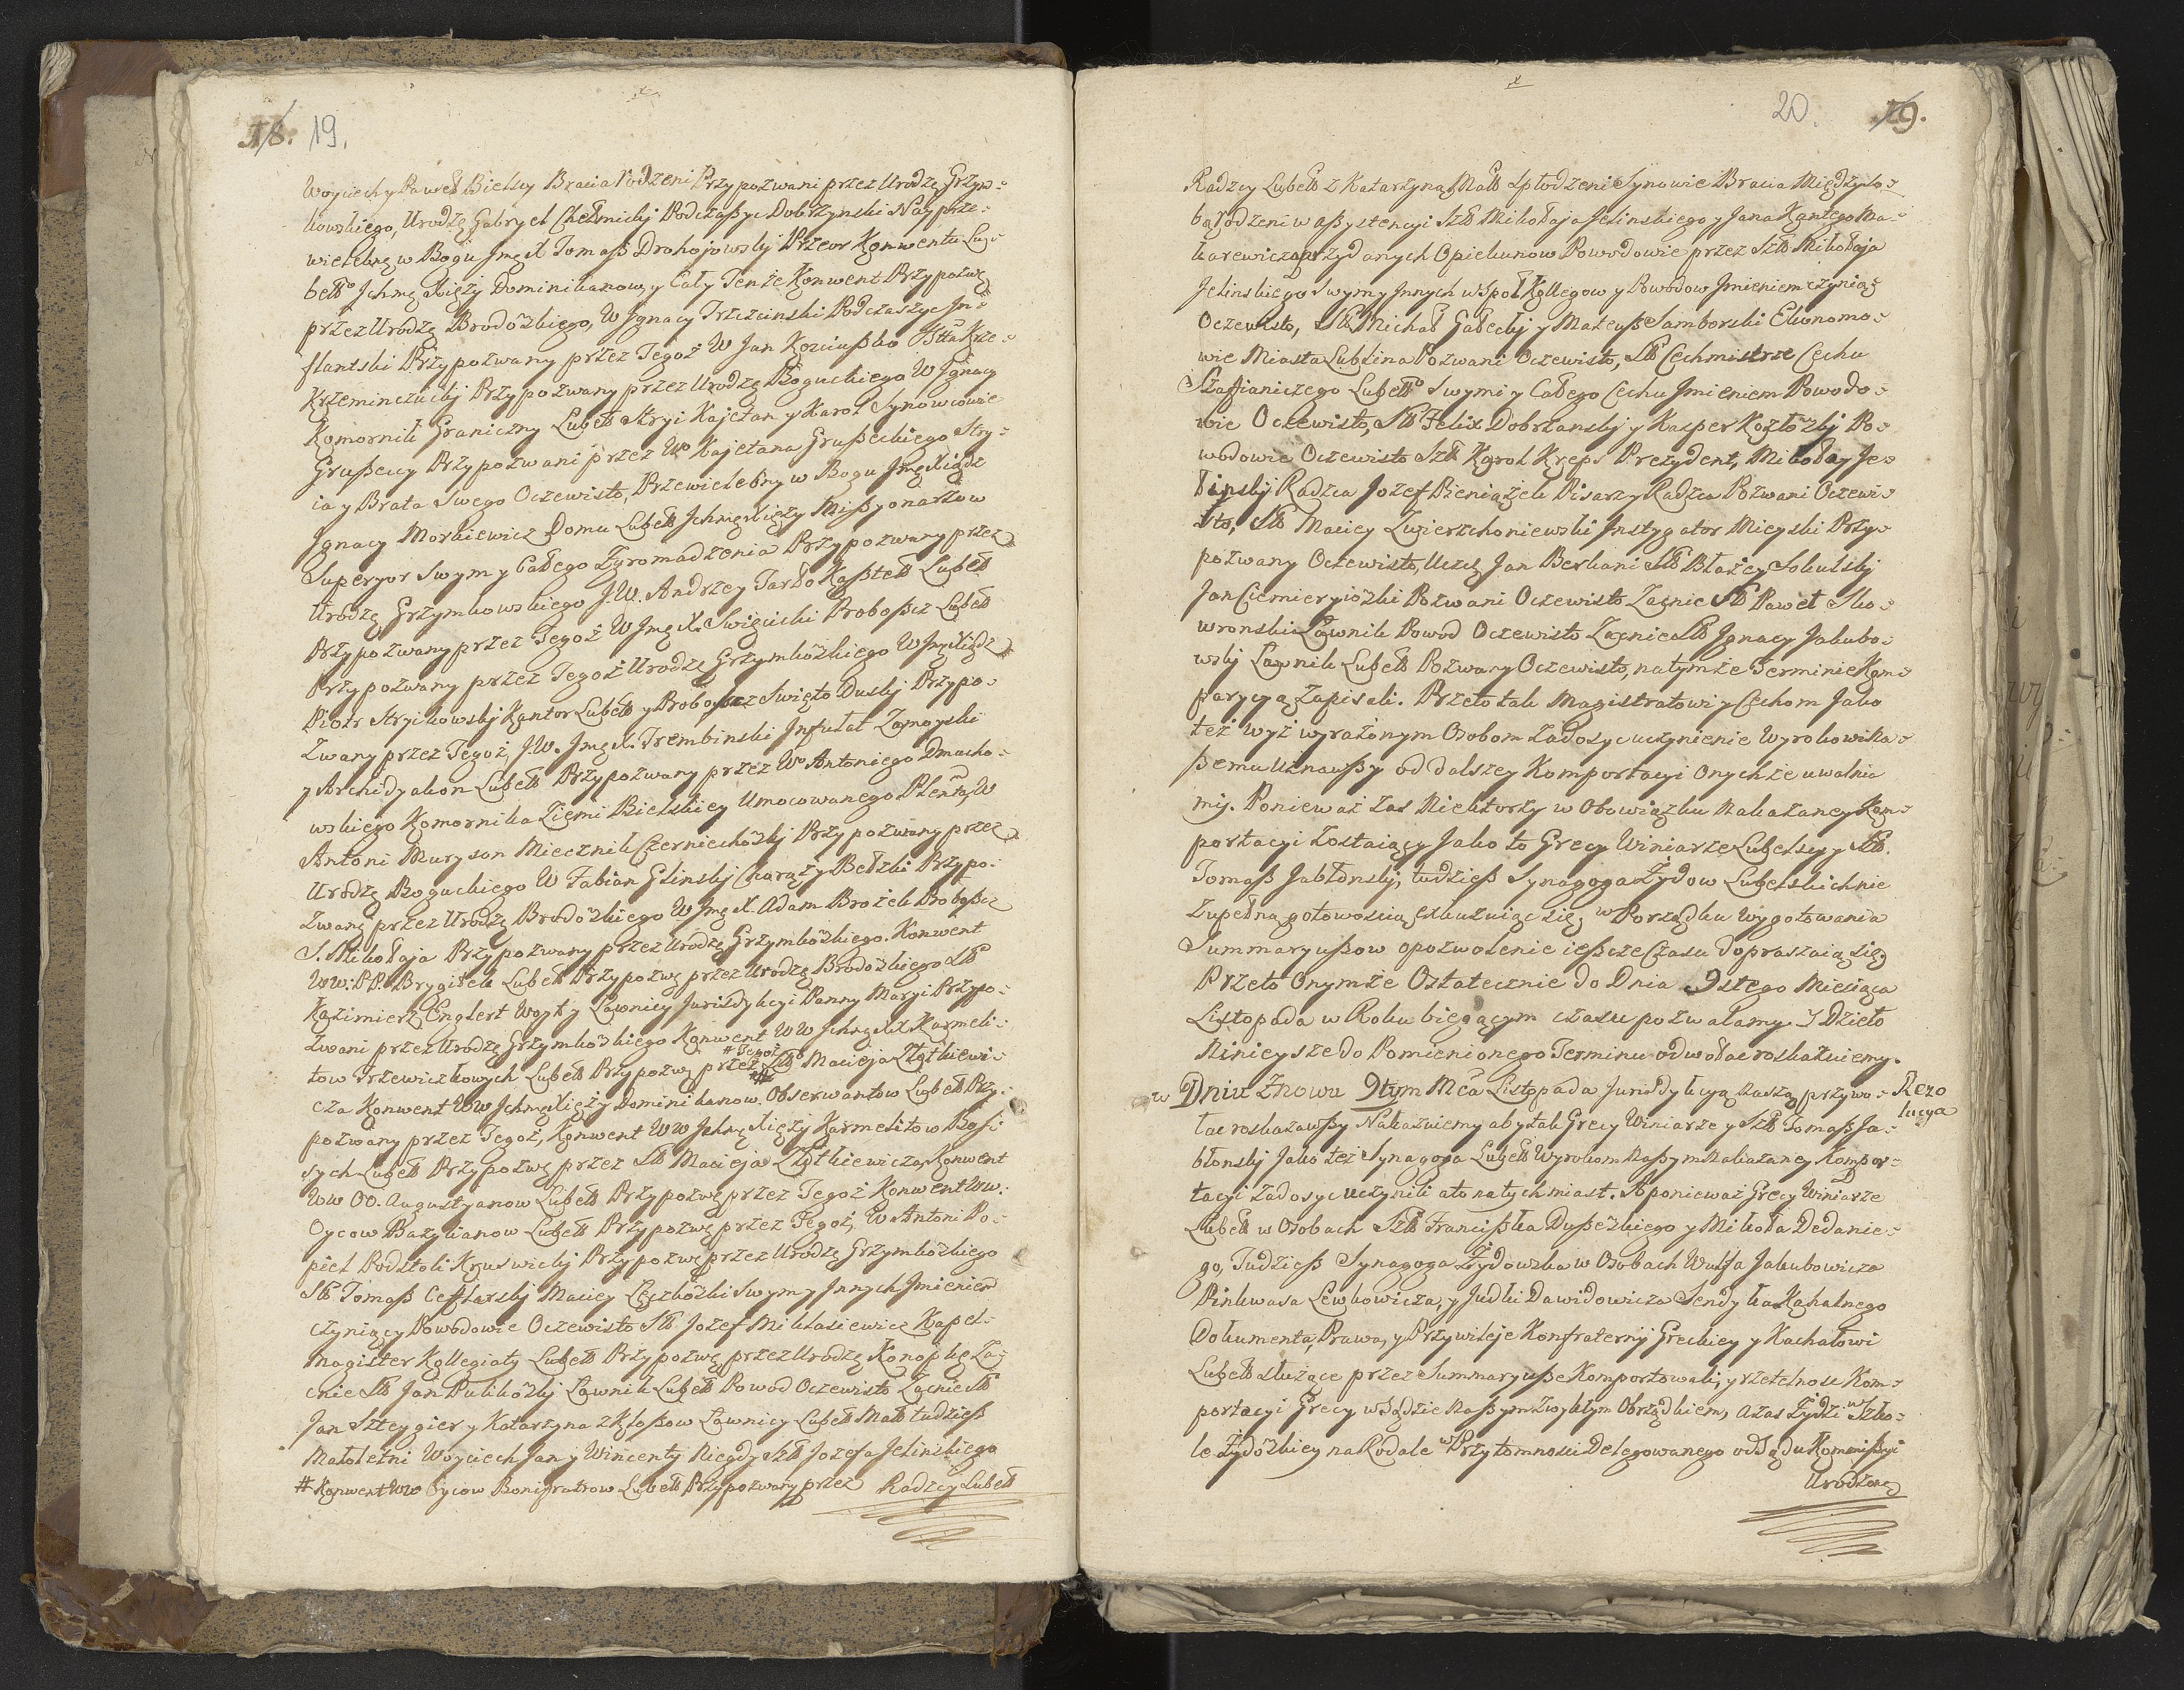 18. 19.
Woyciech y Paweł Bielscy Bracia Rodzeni Przypozwani przez Urodzę Grzym-
kowskiego, Urodzę Gabryel Chełmicki Podczaszyc Dobrzynski Nayprze-
wielebnę w Bogu Jmę X Tomasz Drohojowskj Przeor Konwentu Lu-
belgo Jchmę Xięży Dominikanow, y Cały Tenże Konwent Przypozwę
przez Urodzę Brodoskiego, W Jgnacy Trzcinski Podczaszyc In-
flantski Przypozwany przez Tegoż W Jan Kosciuszko Ktta Krze-
Krzeminczuckj Przypozwany przez Urodzę Boguckiego W Jgnacy
Komornik Graniczny Lubell Stryi Kajetan y Karol Synowcowie
Gruszeccy Przypozwani przez Wo Kajetana Gruszeckiego Stry-
ia y Brata Swego Oczewisto, Przewielebny w Bogu Jmę Xiądz
Jgnacy Morkiewicz Domu Lubell Jchmę Xięży Missyonarzow
Superyor Swym y Całego Zgromadzenia Przypozwany przez
Urodzę Grzymkowskiego J.W. Andrzey Tarło Kasztell Lubell
Przypozwany przez Tegoż W Jmę X. Swięcicki Proboszcz Lubell
Przypozwany przez Tegoż Urodzę Grzymkoskiego W Jmę Xiądz
Piotr Stryikowskj Kantor Lubell y Proboszcz Swięto Duskj Przypo-
zwany przez Tegoż, J.W. Jmę X. Trembinski Jnfułat Zamoyski
y Archidyakon Lubell Przypozwany przez Wo Antoniego Dmucho-
wskiego Komornika Ziemi Bielskiey Umocowanego Plenta, W
Antoni Muryson Miecznik Czerniechoskj Przypozwany przez
Urodzę Boguckiego W Fabian Glinskj Chorąży Bełzki Przypo-
zwany przez Urodzę Brodoskiego W Jmę X. Adam Brożek Proboszcz
S. Mikołaja Przypozwany przez Urodzę Grzymkoskiego. Konwent
WW: PP. Brygitek Lubell Przypozwę przez Urodzę Brodoskiego Sltt
Kazimierz Englert Woyt y Ławnicy Jurisdykcyi Panny Maryi Przypo-
zwani przez Urodzę Grzymkoskiego Konwent WW Jchmę XX Karmeli-
tow Trzewiczkowych Lubell Przypozwę przez # Tegoż Sltt Macieja Złotkiewi-
cza Konwent WW Jchmę Xięży Dominikanow Obserwantow Lubell Przy-
pozwany przez Tegoż, Konwent WW Jchmę Xięży Karmelitow Bosi-
sych Lubell Przypozwę przez Sltt Macieja Złotkiewicza, Konwent
WW OO. Augustyanow Lubell Przypozwę przez Tegoż Konwent WW:
Oycow Bazylianow Lubell Przypozwę przez Tegoż, W Antoni Po-
piel Podstoli Kruswickj Przypozwę przez Urodzę Grzymkoskiego
Sltt Tomasz Maciey Swym y Jnnych Jmieniem
czyniący Powodowie Oczewisto Sltt Jozef Mikłasiewicz Kapel-
magister Kollegiaty Lubell Przypozwę przez Urodzę Konopkę Za-
cnie Sltt Jan Pulikoskj Ławnik Lubell Powod Oczewisto Zacnie Sltt
Jan Szteygier y Katarzyna z Kłossow Ławnicy Lubell Mału tudziesz
Małoletni Woyciech Jan y Wincenty Niegdy Sltt Jozefa Jelinskiego
# Konwent WW Oycow Bonifratrow Lubell Przypozwany przez Radzcy Lubell
20. 19.
Radzcy Lubell z Katarzyną Małł Spłodzeni Synowie Bracia Między So-
bą rodzeni w assystencyi Szltt Mikołaja Jelinskiego y Jana Kantego Ma-
karewicza przydanych Opiekunow Powodowie przez Szltt Mikołaja
Jelinskiego Swym y Jnnych wSpoł Kollegow y Powodow Jmieniem czyniąc
Oczewisto, Sltt Michał Gałeckj y Mateusz Samborski Ekonomo-
wie Miasta Lublina Pozwani Oczewisto, Sltt Cechmistrze Cechu
Szafianiczego Lubelgo Swym y Całego Cechu Jmieniem Powodo-
wie Oczewisto, Sltt Felix Dobrzanskj y Kasper Kozłoskj Po-
wodowie Oczewisto Szltt Karol Kreps Prezydent, Mikołay Je-
linskj Radzca Jozef Pieniążek Pisarz y Radzca Pozwani Oczewi-
sto, Sltt Maciey Zwierzchoniewski Jnstygator Mieyski Przy-
pozwany Oczewisto, Uczę Jan Berkani Sltt Błażey Sokulskj
Jan Ciemieryioski Pozwani Oczewisto Zacnie Sltt Paweł Sko-
wronski Ławnik Powod Oczewisto Zacnie Sltt Jgnacy Jakubo-
wskj Ławnik Lubell Pozwany Oczewisto, na tymże Terminie Kom-
parycyą zapisali. Przeto tak Magistratowi y Cechom Jako
też wyż wyrażonym Osobom zadosyc uczynienie Wyrokowi Na-
szemu uznawszy od dalszey Komportacyi Onychże uwalnia
my. Ponieważ zas Niektorzy w Obowiązku Nakazaney Kom-
portacyi zostaiący Jako to Grecy Winiarze Lubelscy y Sltt
Tomasz Jabłonskj, tudziesz Synagoga Żydow Lubelskich nie
zupełną gotowoscią exkuzuiąc się w Porządku Wygotowania
Summaryuszow o pozwolenie ieszcze Czasu dopraszaią się,
Przeto Onymże Ostatecznie do Dnia 9stego Miesiąca
Listopada w Roku biegącym czasu pozwalamy. Y Dzieło
Ninieysze do Pomienionego Terminu odwołac roskazuiemy.
w Dniu Znowu 9tym Mca Listopada Jurisdykcyą Naszą przywo- Rezo
łac roskazawszy Nakazuiemy aby tak Grecy Winiarze y Szltt Tomasz Ja- lucya
błonskj Jako też Synagoga Lubell Wyrokom Naszym Nakazaney Kompor-
tacyi zadosyc uczynili a to natychmiast. A ponieważ Grecy Winiarze
Lubell w Osobach Szltt Franciszka Duszeskiego y Mikoła Dedanie-
go, Tudziesz Synagoga Żydowska w Osobach Wulfa Jakubowicza
Pinkwasa Lewkowicza, y Judki Dawidowicza Sendyka Kahalnego
Dokumenta, Prawa, y Przywileje Konfraternij Greckiey y Kachałowi
Lubell służące przez Summaryusze Komportowali, y rzetelnosc Kom-
portacyi Grecy w Sądzie Naszym zwykłym Obrządkiem, a zas Żydzi w Szko-
le Żydoskiey na Rodale w Przytomnosci Delegowanego od Sądu Kommissyi
Urodzonę